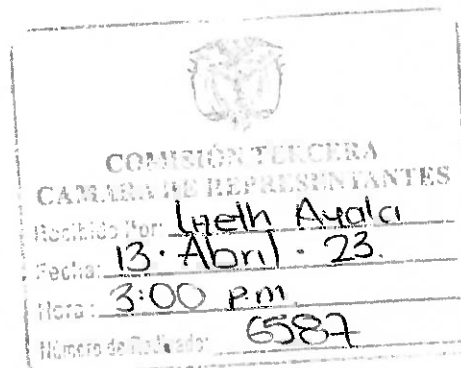 COMISIÓN TERCERA
CAMARA DE REPRESENTANTES
Recibido Por: Lyeth Ayala
Fecha: 13. Abril - 23.
Hora: 3:00 p.m
Número de Radicado: 6587